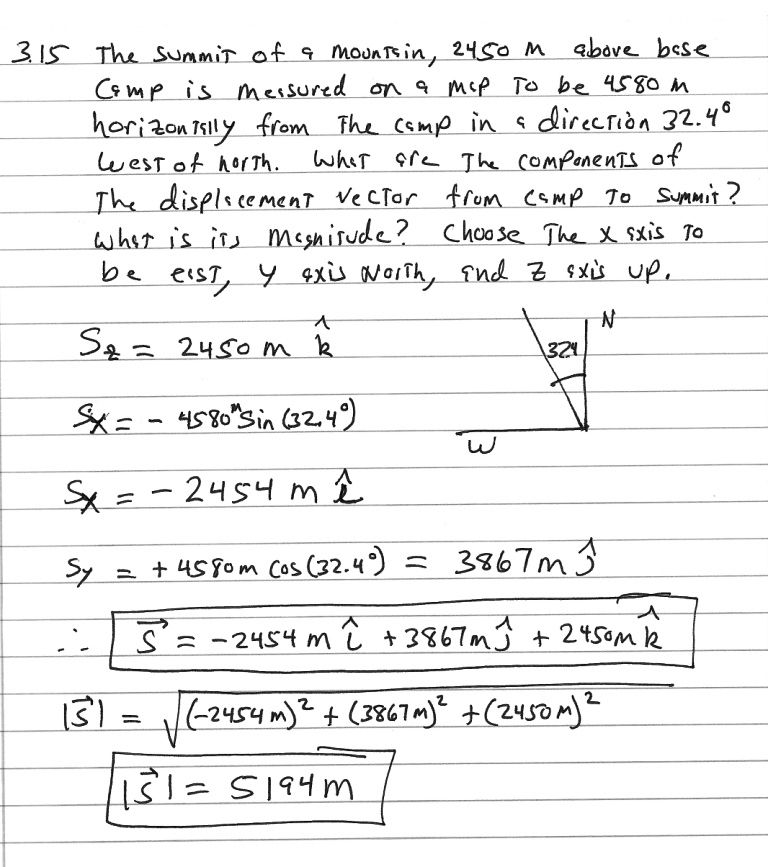 3.15 The summit of a mountain, 2450 m above base
camp is measured on a map to be 4580 m
horizontally from the camp in a direction 32.4°
west of north. What are the components of
the displacement vector from camp to summit?
What is its magnitude? Choose the x axis to
be east, y axis North, and z axis up.
N
32.4
W
S_z = 2450 m k̂
S_x = - 4580 m Sin (32.4°)
S_x = - 2454 m î
S_y = + 4580 m Cos (32.4°) = 3867 m ĵ
∴ S⃗ = -2454 m î + 3867 m ĵ + 2450 m k̂
|S⃗| = √(-2454 m)² + (3867 m)² + (2450 m)²
|S⃗| = 5194 m